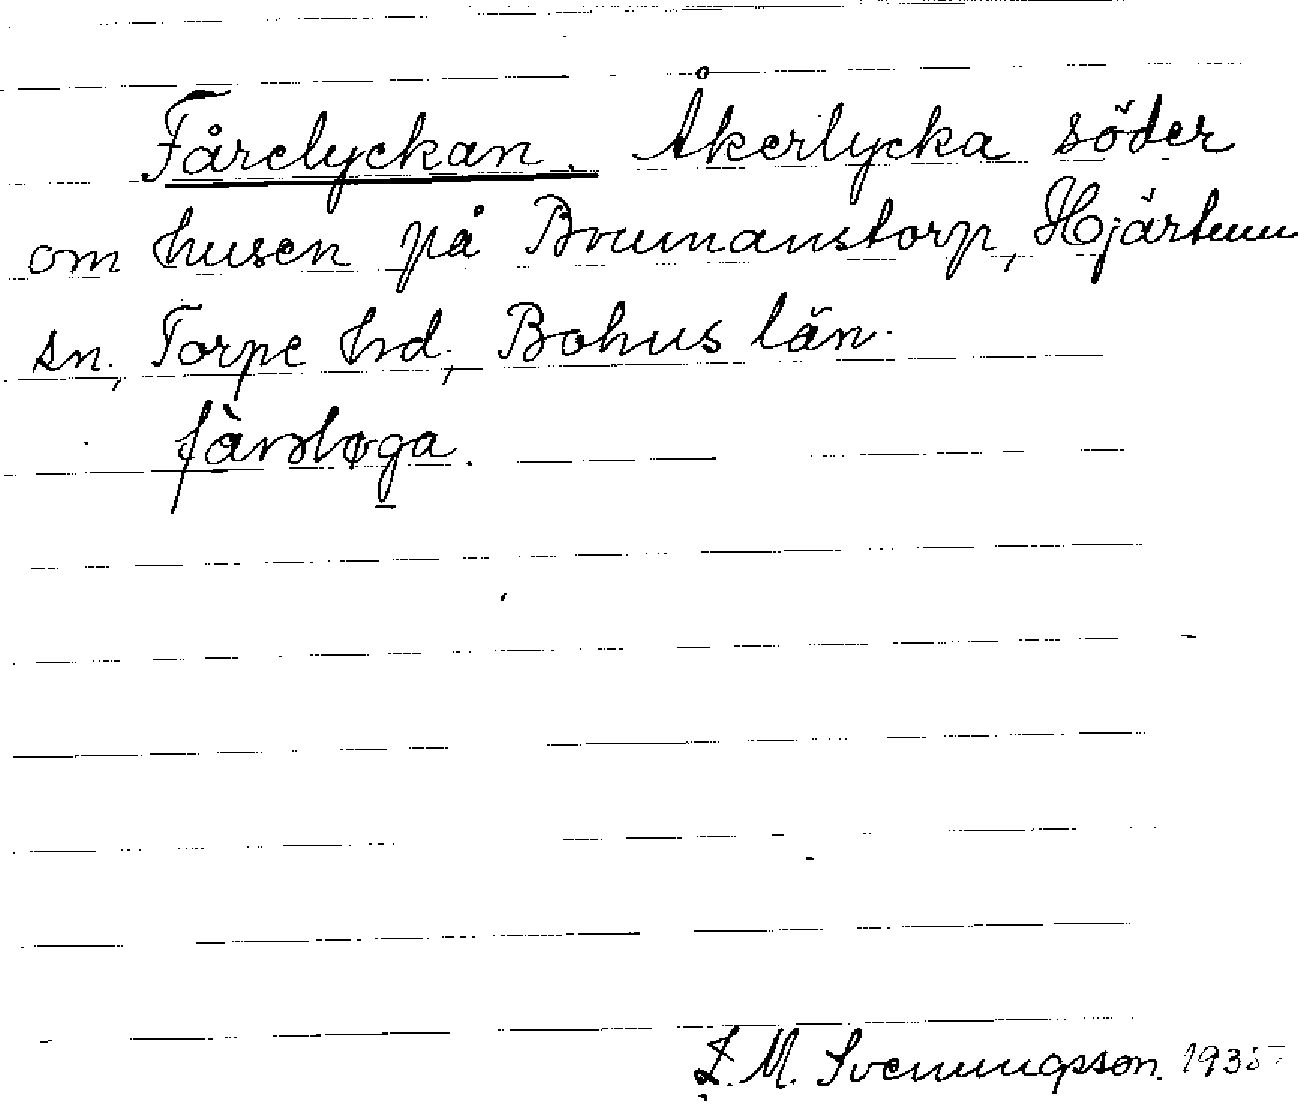 Fårelyckan. Åkerlycka söder
om husen på Brumanstorp, Hjärtum
sn, Torpe hrd, Bohus län.
fàrəløga.
L. M. Svenungsson. 1935